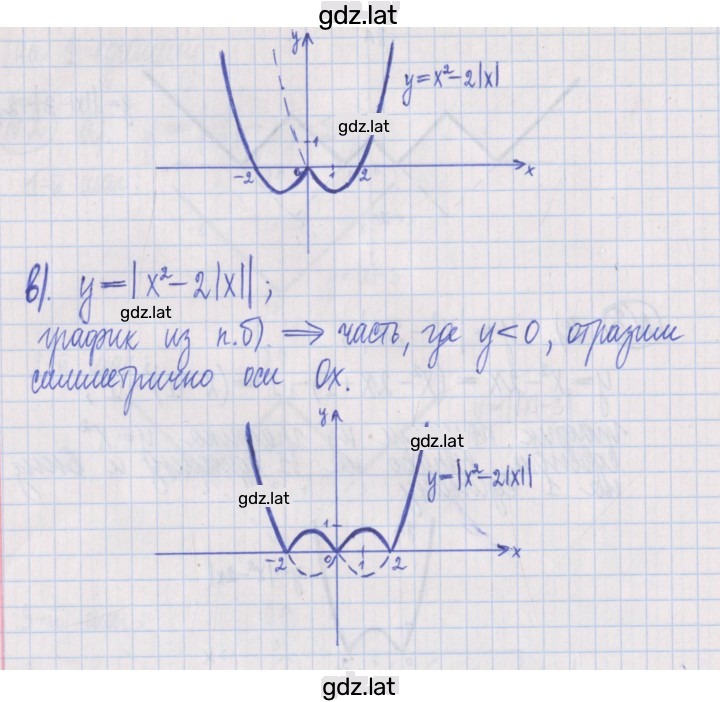 gdz.lat
y
y=x²-2|x|
gdz.lat
1
-2 0 1 2 x
в). y=|x²-2|x||;
gdz.lat
график из п.б) ⟹ часть, где y<0, отразим
симметрично оси Ox.
y
gdz.lat
y=|x²-2|x||
gdz.lat
1
-2 0 1 2 x
gdz.lat